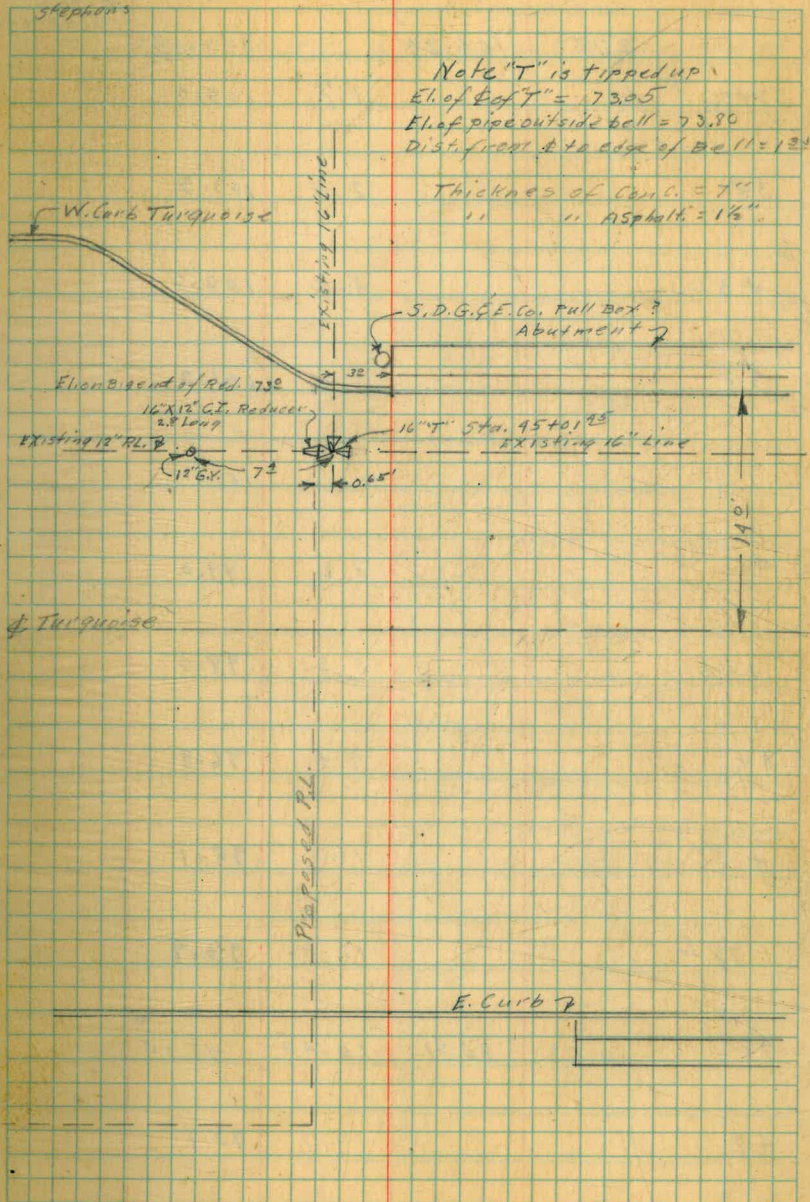 Stephans
Note "T" is tipped up
El. of ₵ of "T" = 73.05
El. of pipe outside bell = 73.80
Dist. from ₵ to edge of Bell =
Thicknes of Conc. = 7"
" " Asphalt. = 1½"
W. Curb Turquoise
Existing 16" Line
S.D.G.&E. Co. Pull Box ?
Abutment
El. on Big end of Red. 73⁰
3⁰
16" X 12" C.I. Reducer
Long
16" "T" Sta. 45+01⁴⁵
Existing 12" P.L.
Existing 16" Line
12" G.V.
0.65'
14.0'
₵ Turquoise
Proposed P.L.
E. Curb